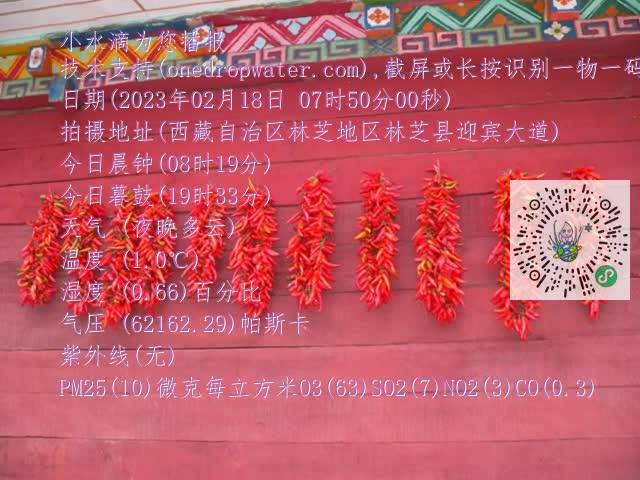 小水滴为您播报
技术支持(onedropwater.com),截屏或长按识别一物一码
日期(2023年02月18日 07时50分00秒)
拍摄地址(西藏自治区林芝地区林芝县迎宾大道)
今日晨钟(08时19分)
今日暮鼓(19时33分)
天气 (夜晚多云)
温度 (1.0℃)
湿度 (0.66)百分比
气压 (62162.29)帕斯卡
紫外线(无)
PM25(10)微克每立方米O3(63)SO2(7)NO2(3)CO(0.3)